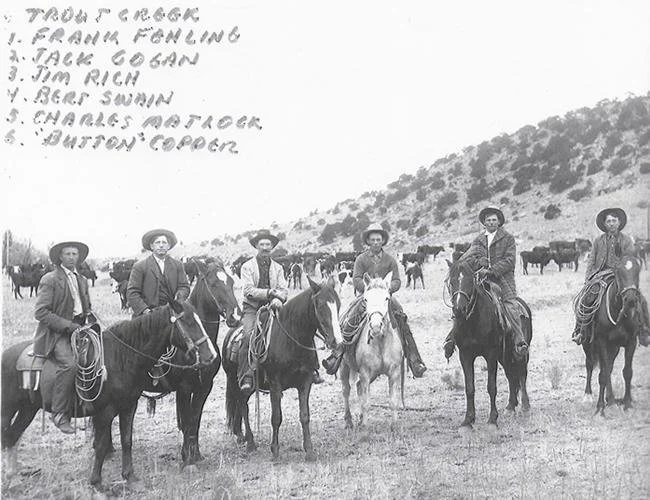 TROUT CREEK
1. FRANK FEHLING
2. JACK COGAN
3. JIM RICH
4. BERT SWAIN
5. CHARLES MATLOCK
6. "BUTTON"